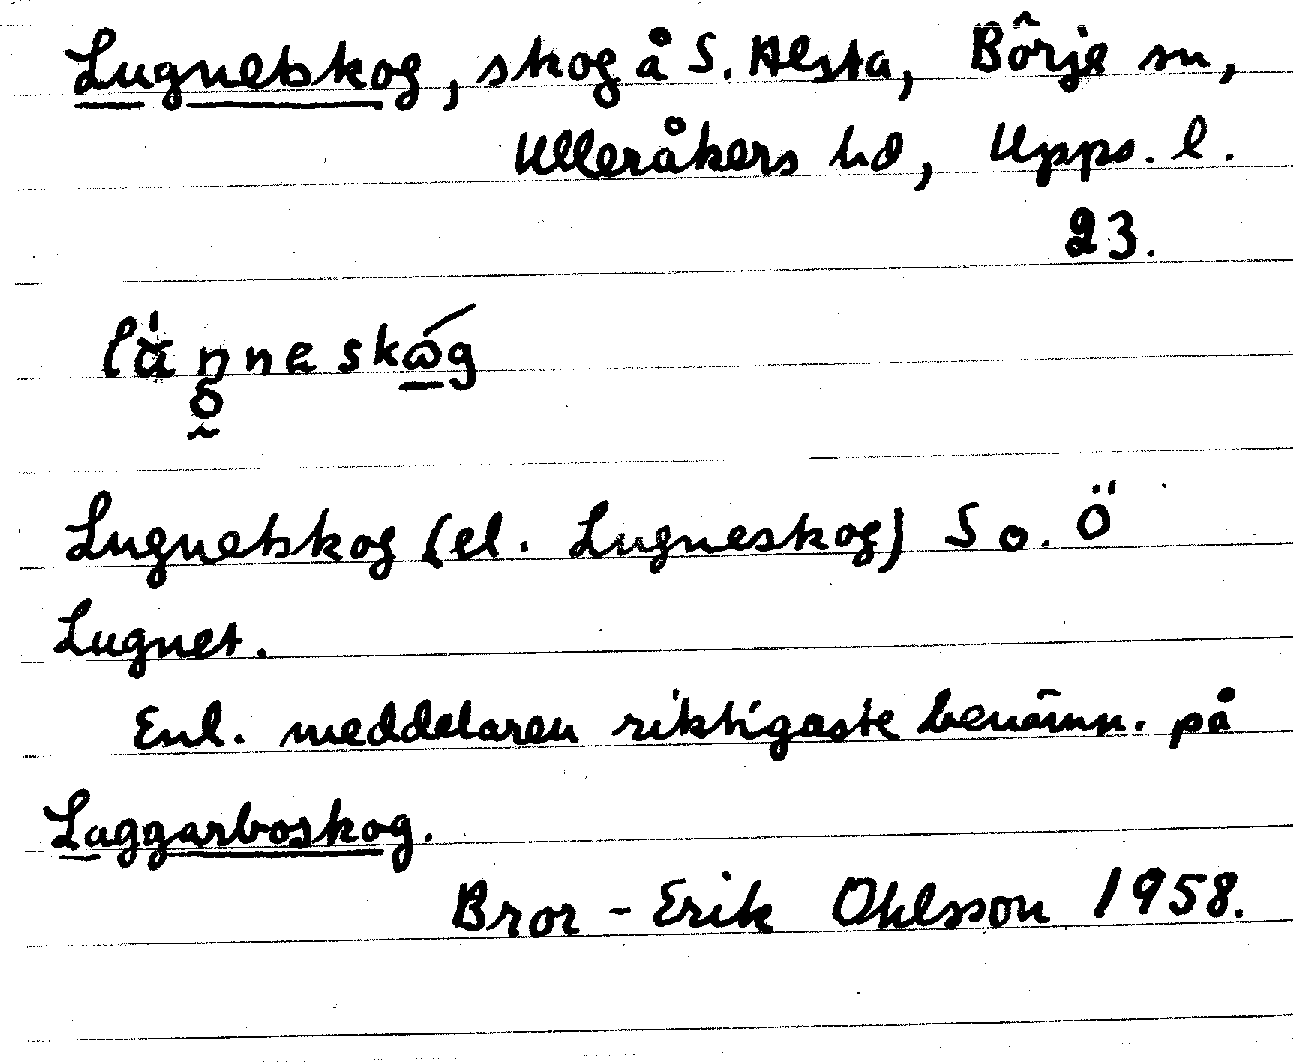 Lugnetskog, skog å S. Alsta, Börje sn,
Ulleråkers hd, Upps. l.
23.
Lugnetskog (el. Lugneskog) S o. Ö
Lugnet.
Enl. meddelaren riktigaste benämn. på
Laggarboskog.
Bror-Erik Ohlsson 1958.